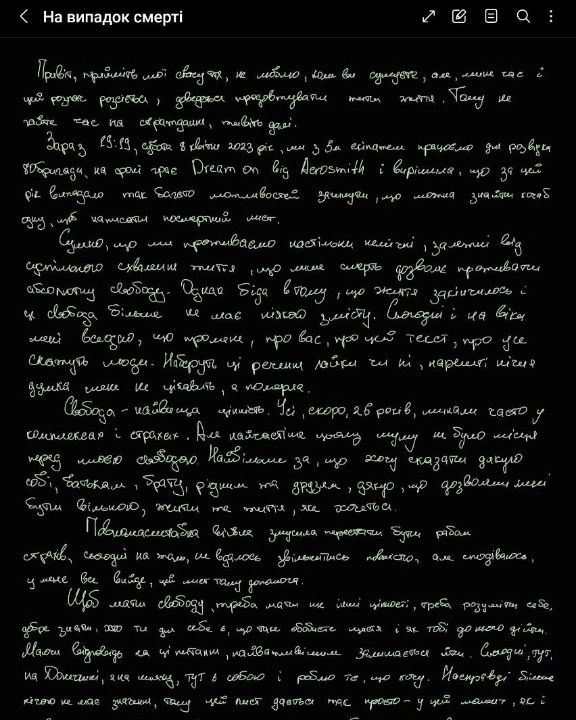 На випадок смерті
Привіт, прийміть мої співчуття, не люблю, коли ви сумуєте, але, мине час і
цей розпач розсіється, доведеться продовжувати жити життя. Тому не
гайте час на страждання, живіть далі.
Зараз 19:19, субота 8 квітня 2023 рік, ми з 3м екіпажем працюємо для розвідки
80бригади, на фоні грає Dream on від Aerosmith і вирішила, що за цей
рік випадало так багато можливостей загинути, що можна знайти хоча б
одну, щоб написати посмертний лист.
Сумно, що ми проживаємо настільки нелічні, залежні від
суспільного схвалення життя, що лише смерть дозволяє проживати
абсолютну свободу. Однак біда в тому, що життя закінчилось і
ця свобода більше не має ніякого змісту. Сьогодні і на віки
мені всеодно, що про мене, про вас, про цей текст, про усе
скажуть люди. Наберуть ці речення лайки чи ні, нарешті нічия
думка мене не цікавить, я померла.
Свобода - найвища цінність. Усі, скоро, 26 років, минали часто у
комплексах і страхах. Але найчастіше цьому мулу не було місця
перед моєю свободою. Найбільше за, що хочу сказати дякую
собі, батькам, брату, рідним та друзям, дякую, що дозволяли мені
бути вільною, жити те життя, яке хочеться.
Повномасштабна війна змусила перестати бути рабом
страхів, сьогодні на жаль, не вдалось звільнитись повністю, але сподіваюсь,
у мене все вийде, цей лист тому допомога.
Щоб мати свободу, треба мати ще інші цінності, треба розуміти себе,
добре знати, хто ти для себе є, що таке особисте щастя і як тобі до нього дійти.
Маючи відповідь на ці питання, найважливішим залишається йти. Сьогодні, тут,
на Донеччині, я на шляху, тут я собою і роблю те, що хочу. Насправді більше
нічого не має значення, тому цей лист дається так просто - у цей момент, як і